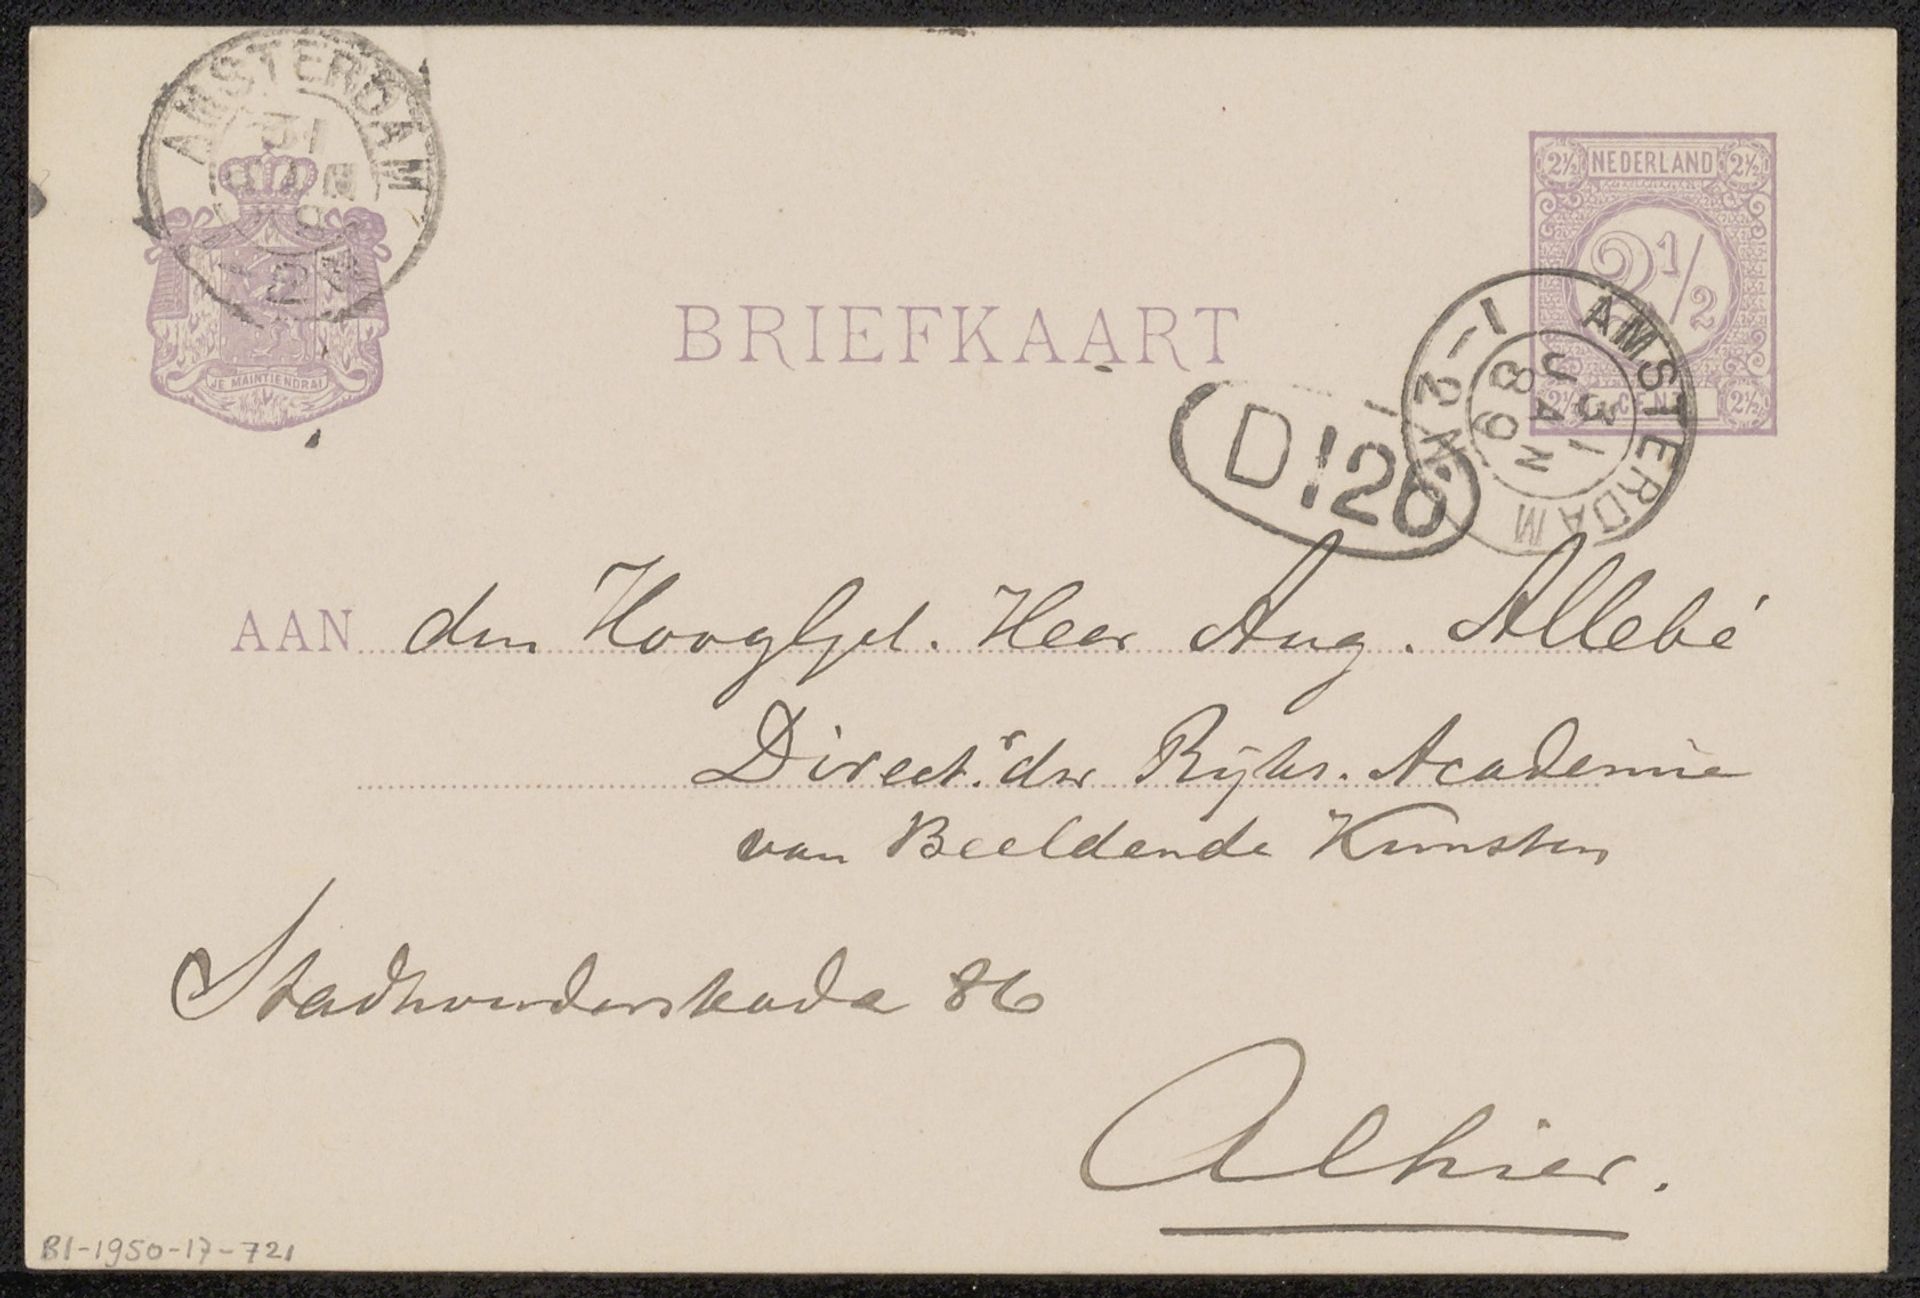 AMSTERDAM
31
NEDERLAND
2½ 2½
2½
CENT
2½ 2½
JE MAINTIENDRAI
BRIEFKAART
AMSTERDAM
31 JAN
89
12-1N
D 120
AAN den Hooglgel. Heer Aug. Allebé
Direct.r der Rijks. Academie
van Beeldende Kunsten
Stadhouderskade 86
Alhier.
BI-1950-17-721